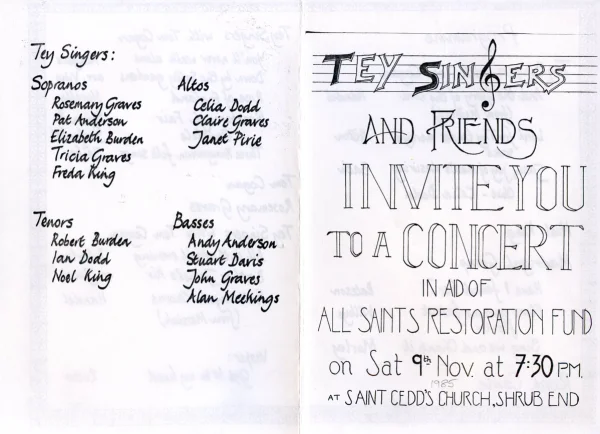 Tey Singers:
Sopranos
Rosemary Graves
Pat Anderson
Elizabeth Burden
Tricia Graves
Freda King
Altos
Celia Dodd
Claire Graves
Janet Pirie
Tenors
Robert Burden
Ian Dodd
Noel King
Basses
Andy Anderson
Stuart Davis
John Graves
Alan Meekings
TEY SINGERS
AND FRIENDS
INVITE YOU
TO A CONCERT
IN AID OF
ALL SAINTS RESTORATION FUND
on Sat 9th Nov. at 7:30 P.M.
1985
AT SAINT CEDD'S CHURCH, SHRUB END